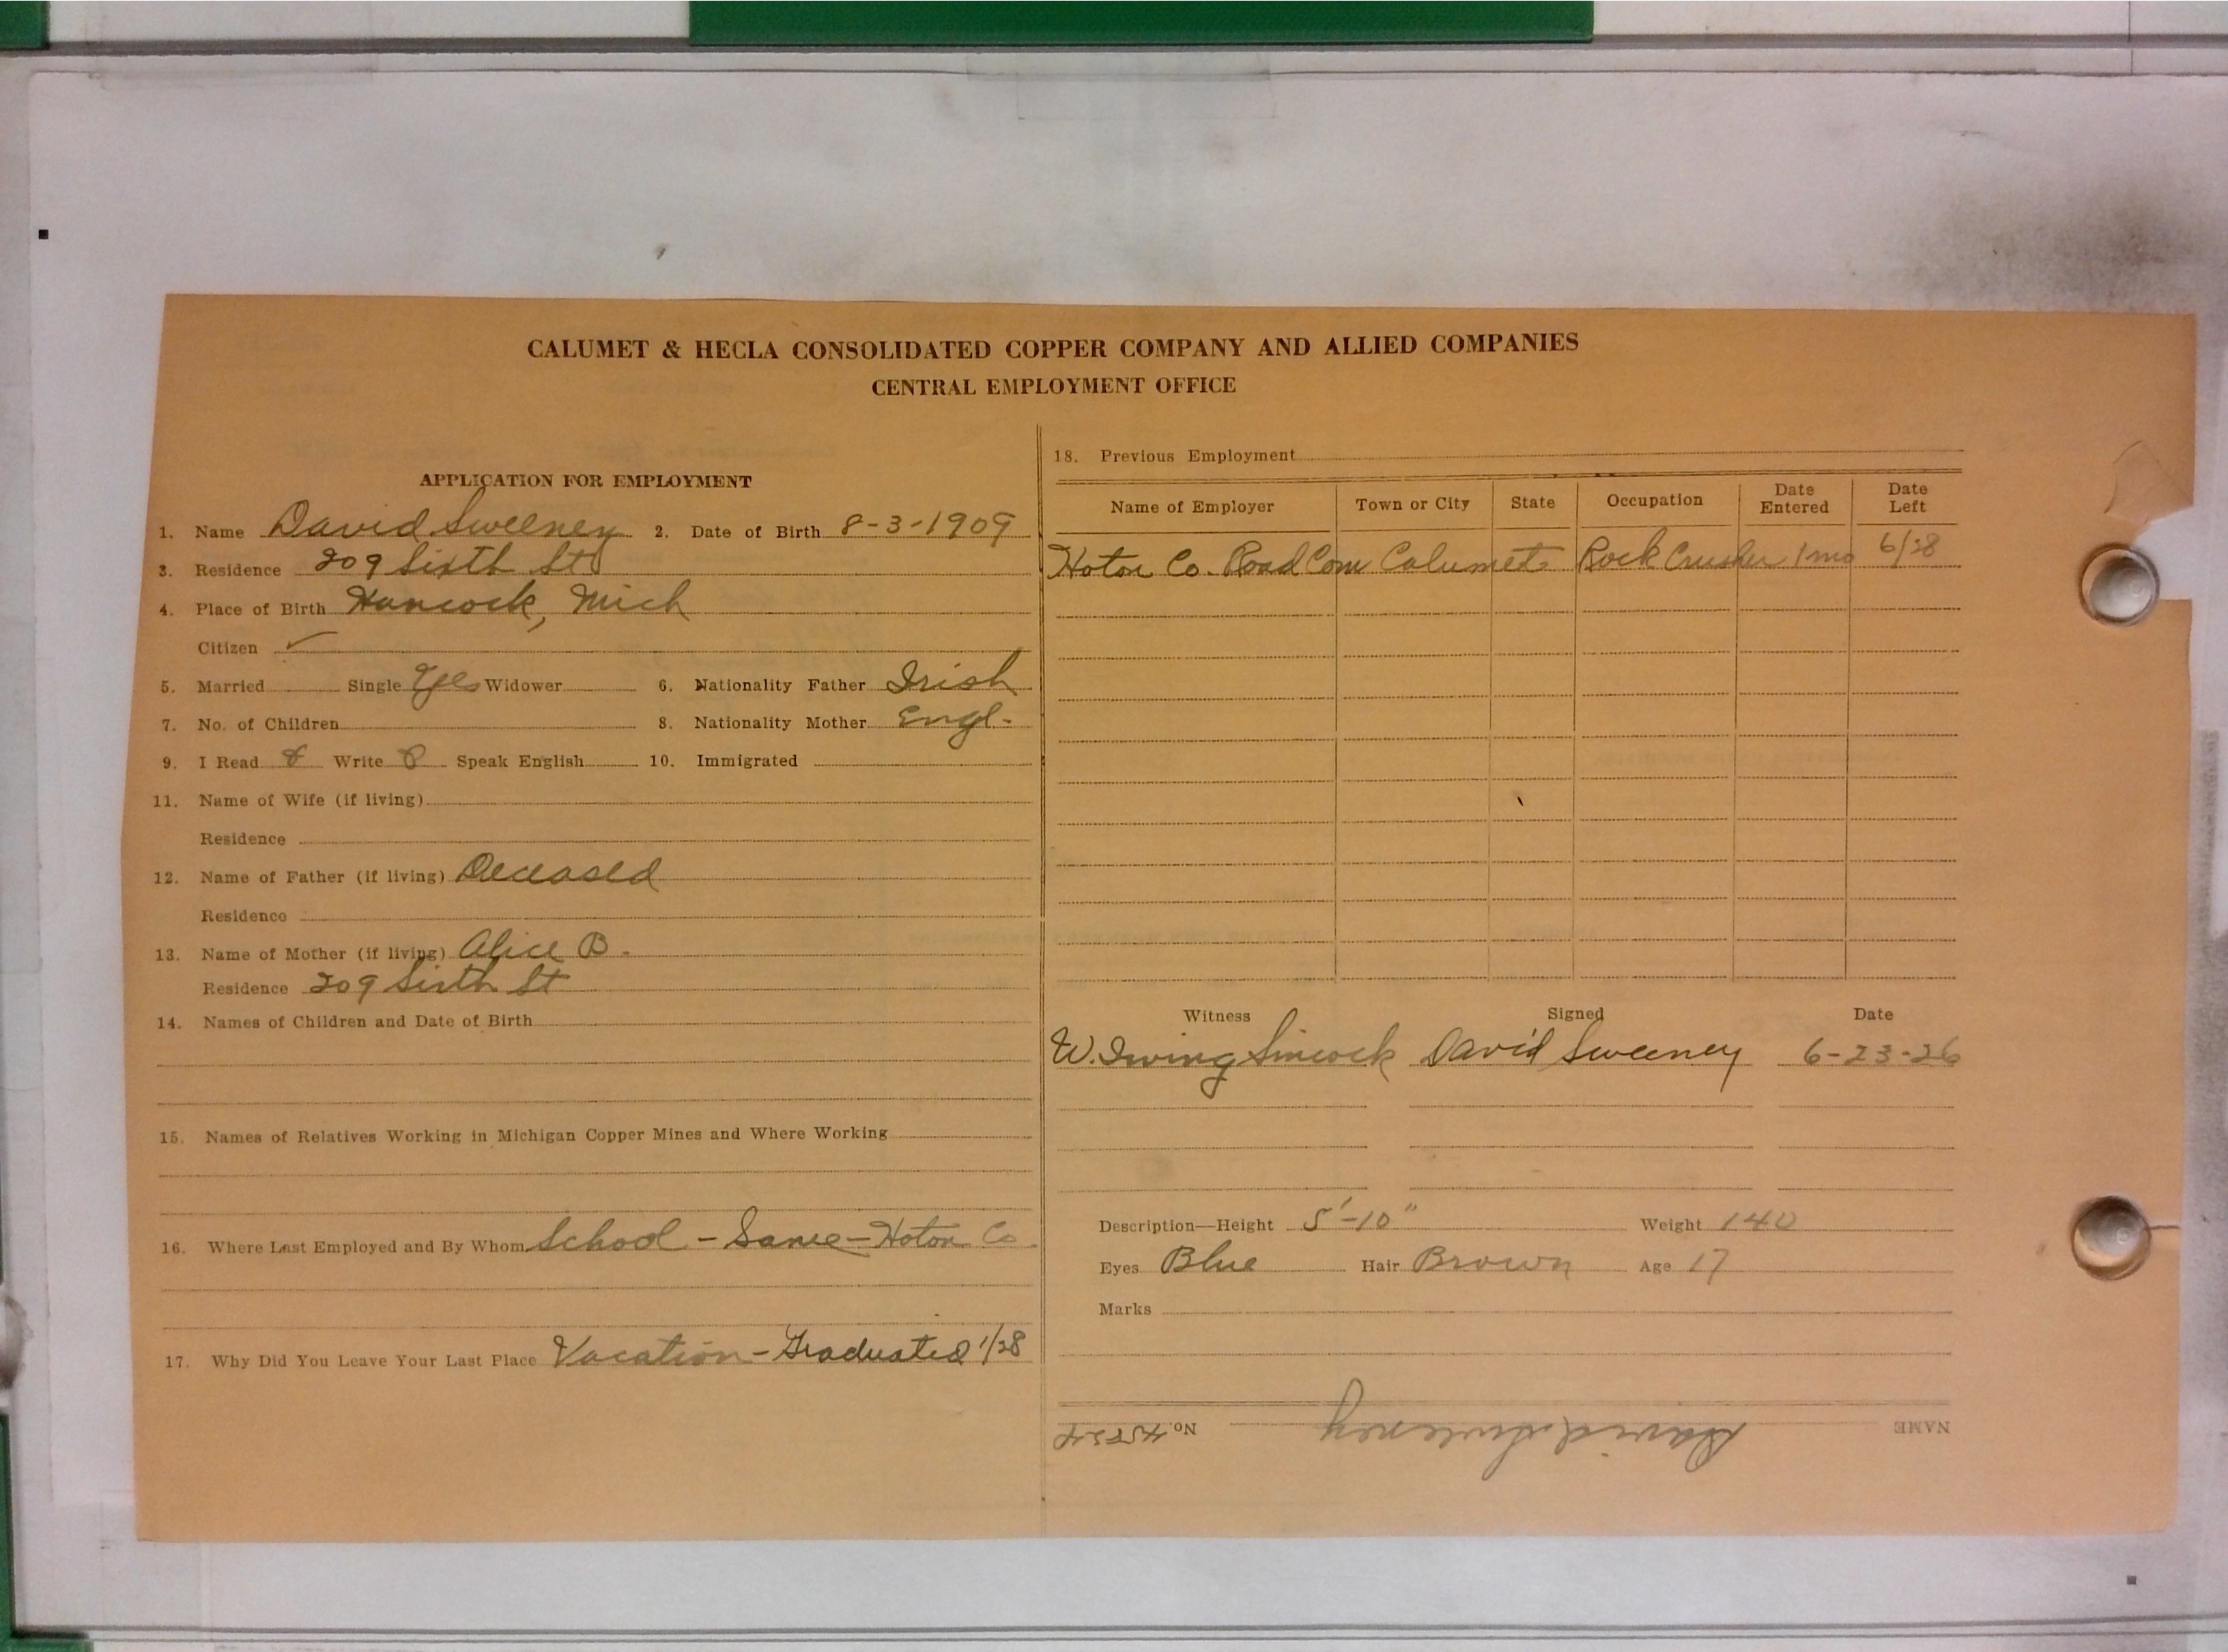 CALUMET & HECLA CONSOLIDATED COPPER COMPANY AND ALLIED COMPANIES
CENTRAL EMPLOYMENT OFFICE
APPLICATION FOR EMPLOYMENT
1. Name David Sweeney 2. Date of Birth 8-3-1909
3. Residence 209 Sixth St
4. Place of Birth Hancock, Mich
Citizen ✓
5. Married Single Yes Widower 6. Nationality Father Irish
7. No. of Children 8. Nationality Mother Engl.
9. I Read Write Speak English 10. Immigrated
11. Name of Wife (if living)
Residence
12. Name of Father (if living) Deceased
Residence
13. Name of Mother (if living) Alice B.
Residence 209 Sixth St
14. Names of Children and Date of Birth
15. Names of Relatives Working in Michigan Copper Mines and Where Working
16. Where Last Employed and By Whom School - Same - Hoton Co.
17. Why Did You Leave Your Last Place Vacation - Graduated 1/28
18. Previous Employment
Name of Employer Town or City State Occupation Date Entered Date Left
Hoton Co. Road Com Calumet Rock Crusher 1 mo 6/28
Witness Signed Date
W. Irving Sincock David Sweeney 6-23-26
Description—Height 5'-10" Weight 140
Eyes Blue Hair Brown Age 17
Marks
NAME David Sweeney No.